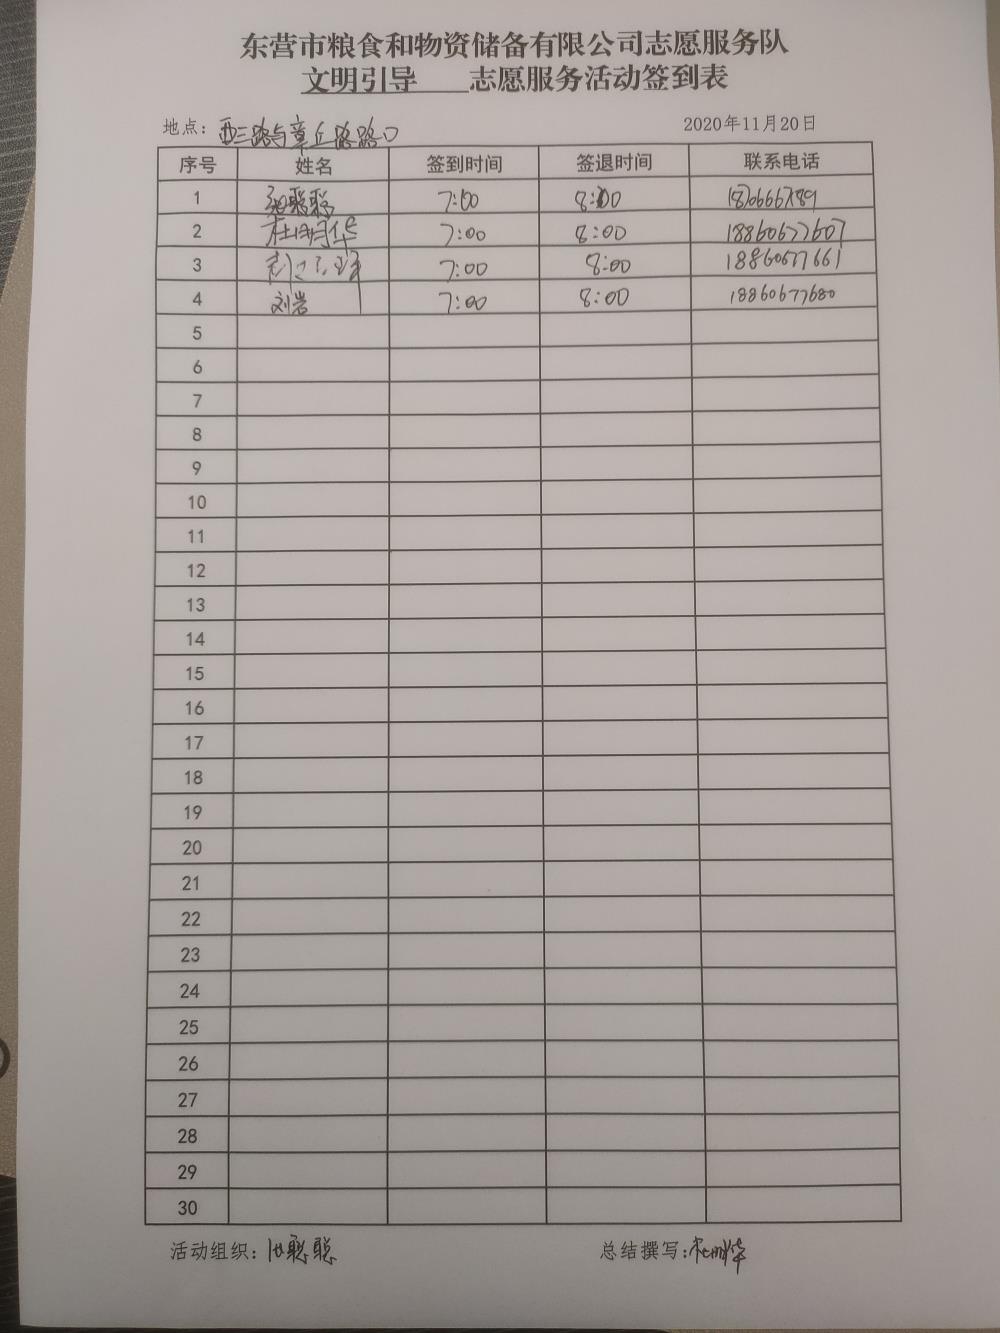 东营市粮食和物资储备有限公司志愿服务队
文明引导 志愿服务活动签到表
地点：西三路与章丘路路口 2020年11月20日
序号 姓名 签到时间 签退时间 联系电话
1 聪聪 7:00 8:00
2 杜明华 7:00 8:00 18860677607
3 7:00 8:00 18860677661
4 刘岩 7:00 8:00 18860677680
5
6
7
8
9
10
11
12
13
14
15
16
17
18
19
20
21
22
23
24
25
26
27
28
29
30
活动组织：聪聪 总结撰写：杜明华